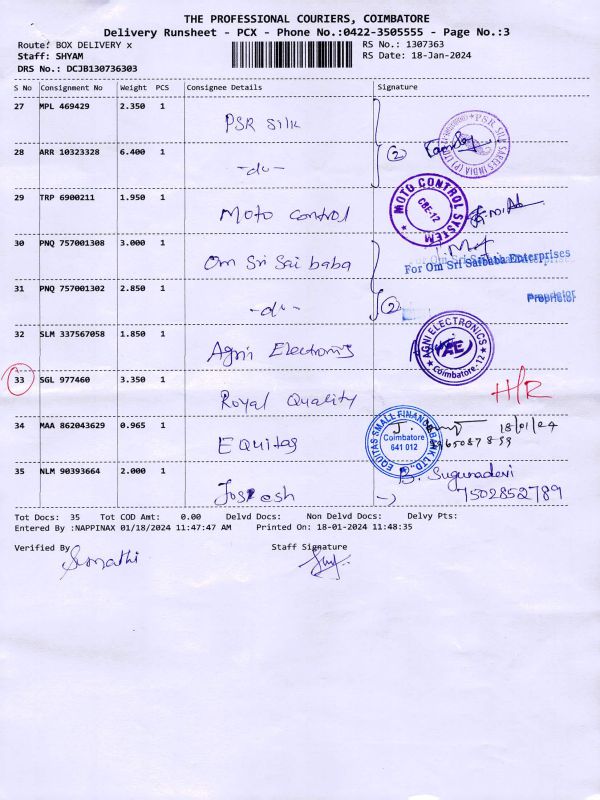 THE PROFESSIONAL COURIERS, COIMBATORE
Delivery Runsheet - PCX - Phone No.:0422-3505555 - Page No.:3
Route: BOX DELIVERY x
RS No.: 1307363
Staff: SHYAM
RS Date: 18-Jan-2024
DRS No.: DCJB130736303
S No Consignment No Weight PCS Consignee Details Signature
27 MPL 469429 2.350 1 PSR SILK
28 ARR 10323328 6.400 1 -do- 2
PSR SILK SAREES INDIA (P) LTD
29 TRP 6900211 1.950 1 Moto control
MOTO CONTROL SYSTEM
CBE-12
30 PNQ 757001308 3.000 1 Om Sri Sai baba
For Om Sri Saibaba Enterprises
31 PNQ 757001302 2.850 1 -do- 2
Proprietor
32 SLM 337567058 1.850 1 Agni Electronis
AGNI ELECTRONICS
AE
Coimbatore-12
33 SGL 977460 3.350 1 Royal Quality H/R
34 MAA 862043629 0.965 1 EQuitas
EQUITAS SMALL FINANCE BANK LTD.
Coimbatore
641 012
18/01/24
35 NLM 90393664 2.000 1 Joseosh
B. Sugunadevi
7502852789
Tot Docs: 35 Tot COD Amt: 0.00 Delvd Docs: Non Delvd Docs: Delvy Pts:
Entered By :NAPPINAX 01/18/2024 11:47:47 AM Printed On: 18-01-2024 11:48:35
Verified By
Staff Signature